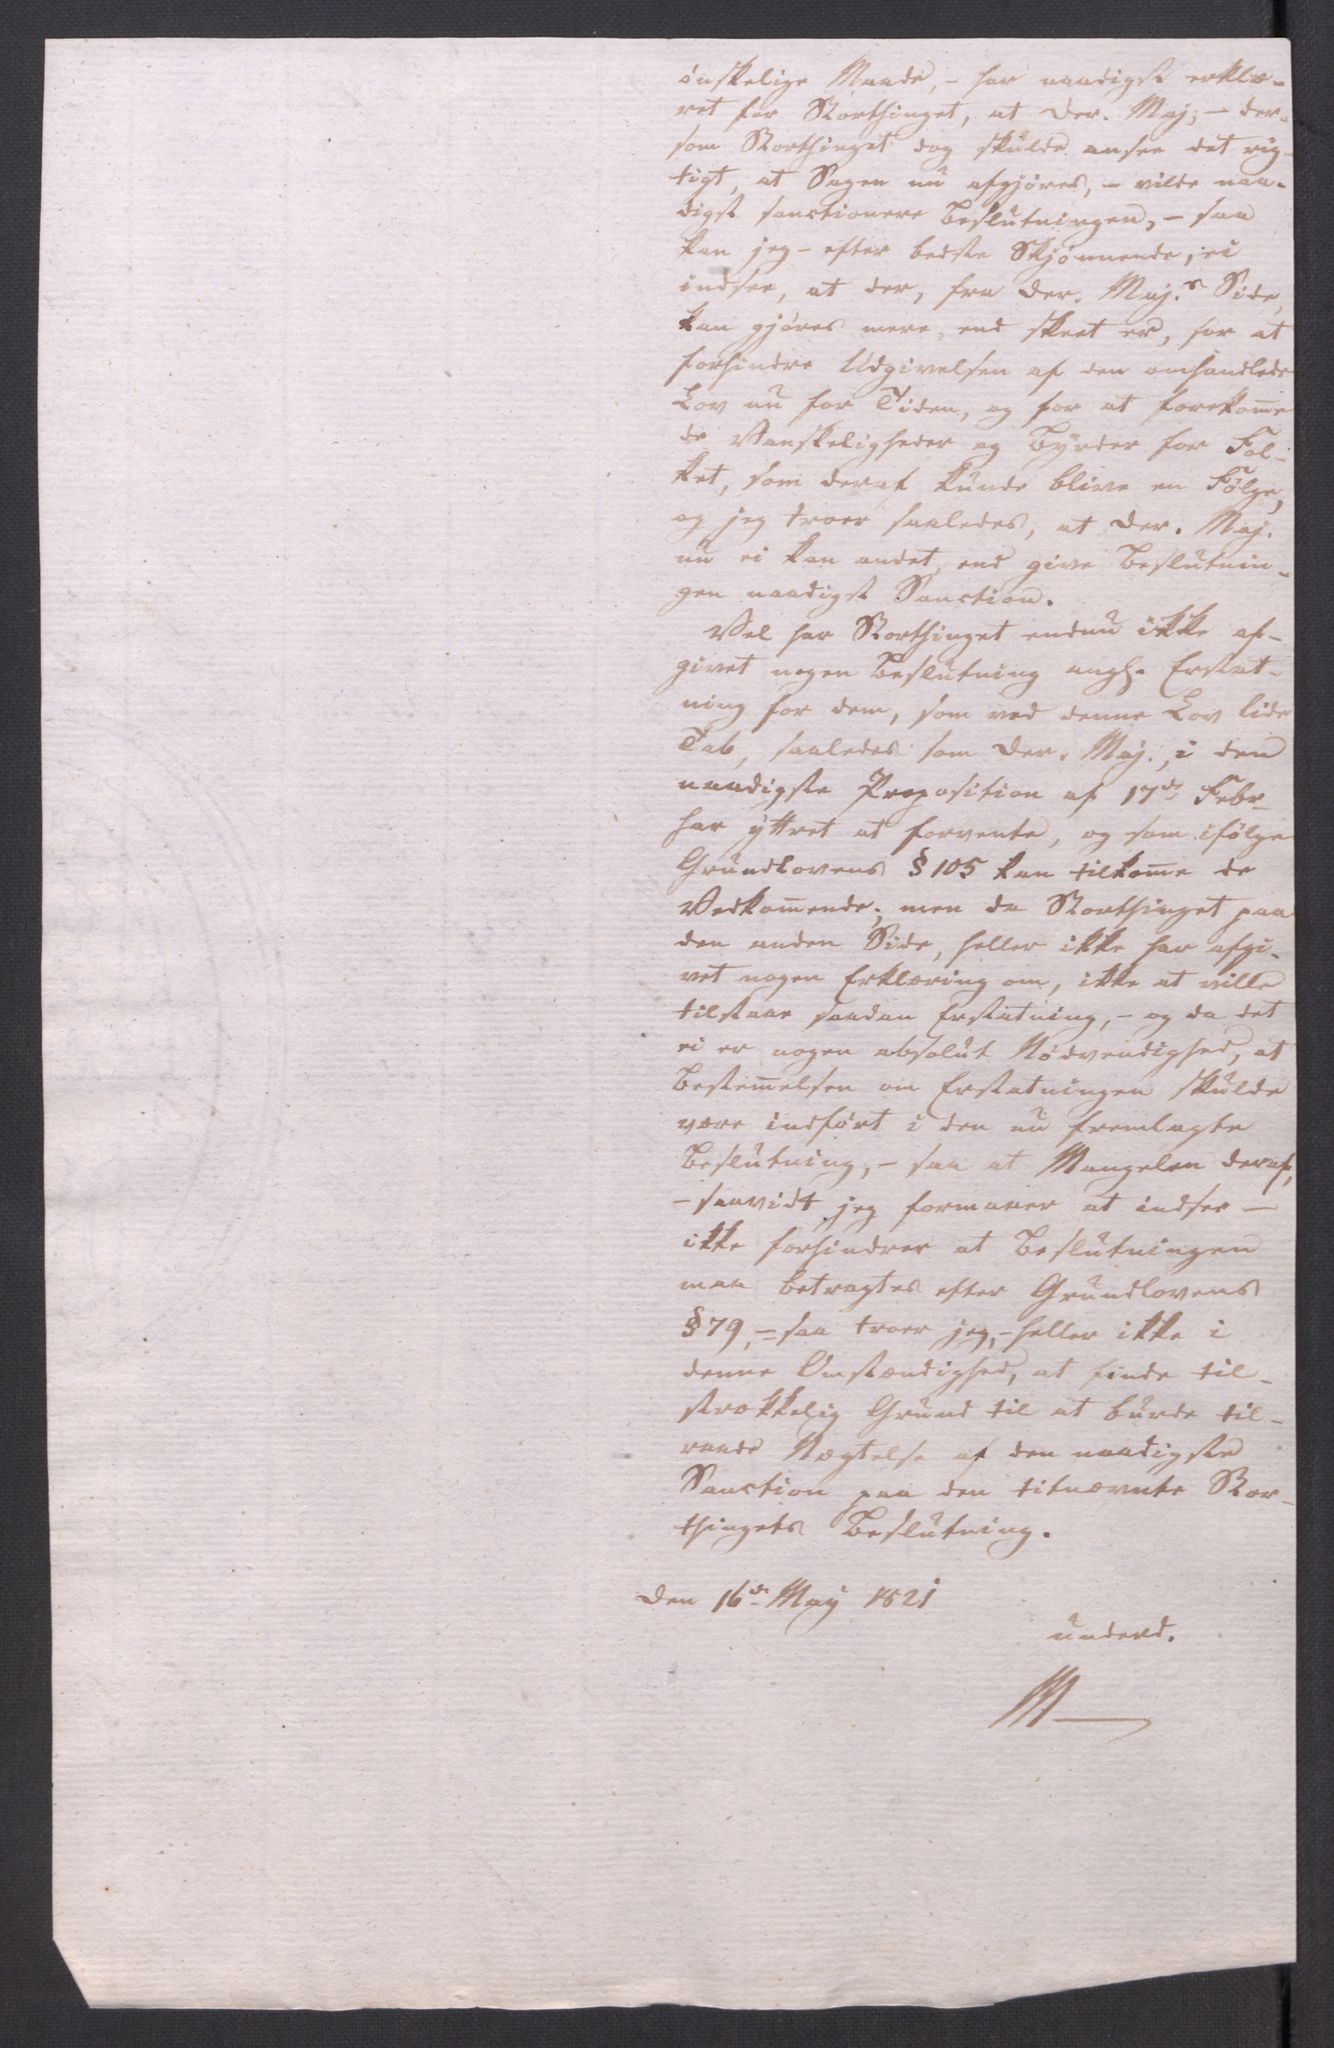 ønskelige Maade, – har naadigst erklæ-
ret for Storthinget, at Der. Maj; – der-
som Storthinget dog skulde ansee det rig-
tigt, at Sagen nu afgjøres, – vilde naa-
digst sanctionere Beslutningen, – saa
kan jeg – efter bedste Skjønnende, ei
indsee, at der, fra Der. Maj.s Side,
kan gjøres mere, end skeet er, for at
forhindre Udgivelsen af den omhandlede
Lov nu for Tiden, og for at forekom̅e
de Vanskeligheder og Byrder for Fol-
ket, som deraf kunde blive en Følge,
og jeg troer saaledes, at Der. Maj.
nu ei kan andet, end give Beslutnin-
gen naadigst Sanction.
Vel har Storthinget endnu ikke af-
givet nogen Beslutning angl. Erstat-
ning for dem, som ved denne Lov lide
Tab, saaledes som Der. Maj., i den
naadigste Proposition af 17de Febr
har yttret at forvente, og som ifølge
Grundlovens § 105 kan tilkom̅e de
Vedkom̅ende; men da Storthinget paa
den anden Side, heller ikke har afgi-
vet nogen Erklæring om, ikke at ville
tilstaae saadan Erstatning, – og da det
ei er nogen absolut Nødvendighed, at
Bestem̅elsen om Erstatningen skulde
være indført i den nu fremlagte
Beslutning, – saa at Mangelen deraf,
– saavidt jeg formaaer at indsee –
ikke forhindrer at Beslutningen
maa betragtes efter Grundlovens
§ 79, – saa troer jeg, – heller ikke i
denne Omstændighed, at finde til-
strækkelig Grund til at burde til-
raade Nægtelse af den naadigste
Sanction paa den titnævnte Stor-
thingets Beslutning.
Den 16de May 1821
underd.
M